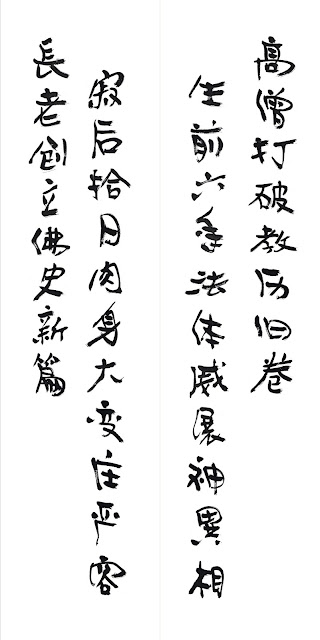 高僧打破教历旧卷
生前六年法体威展神異相
寂后拾日肉身大变庄严容
長老創立佛史新篇